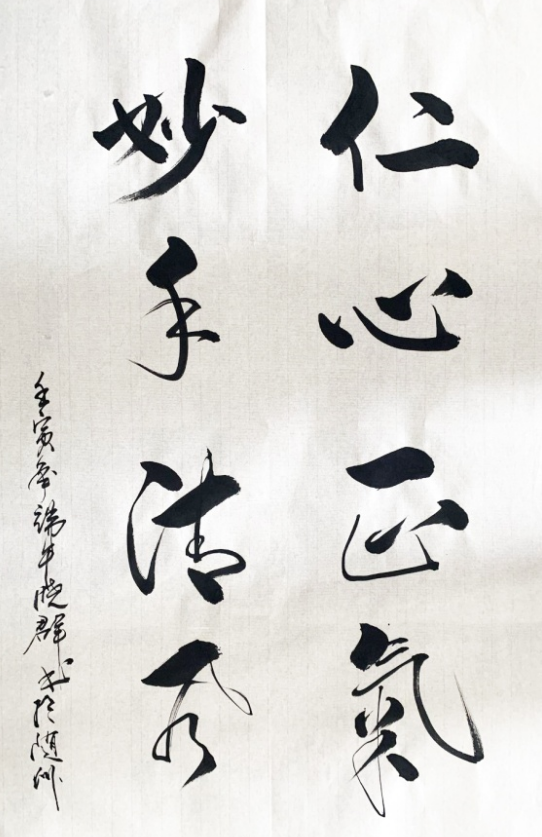 仁心正氣
妙手清風
壬寅年端午曉群書於隨州